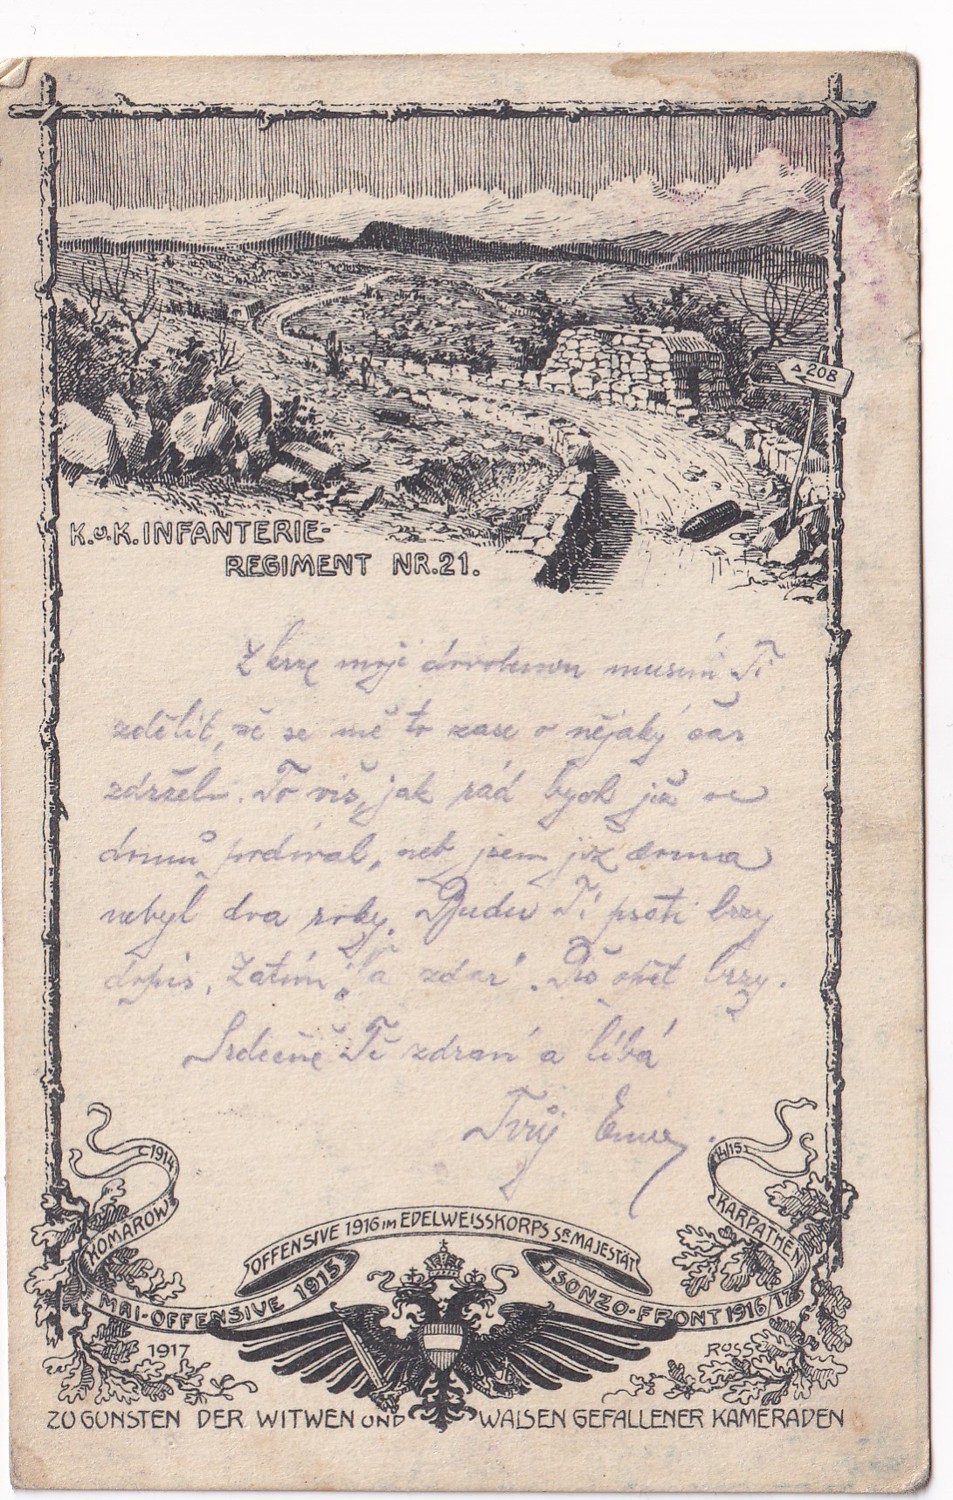 208
K.u.K. INFANTERIE-
REGIMENT NR.21.
moji dovolenou musím Ti
zdělit, že se mě to zase o nějaký čas
zdrželo. To víš, jak rád bych již se
domů podíval, neb jsem již doma
nebyl dva roky. Budu Ti psáti brzy
dopis. Zatím "Na zdar". Piš opět brzy.
Srdečně Tě zdraví a líbá
Tvůj
1914
KOMAROW
MAI-OFFENSIVE 1915
OFFENSIVE 1916 IM EDELWEISSKORPS Sr MAJESTÄT
14/15
KARPATHEN
ISONZO-FRONT 1916/17
1917
ROSS
ZU GUNSTEN DER WITWEN UND WAISEN GEFALLENER KAMERADEN